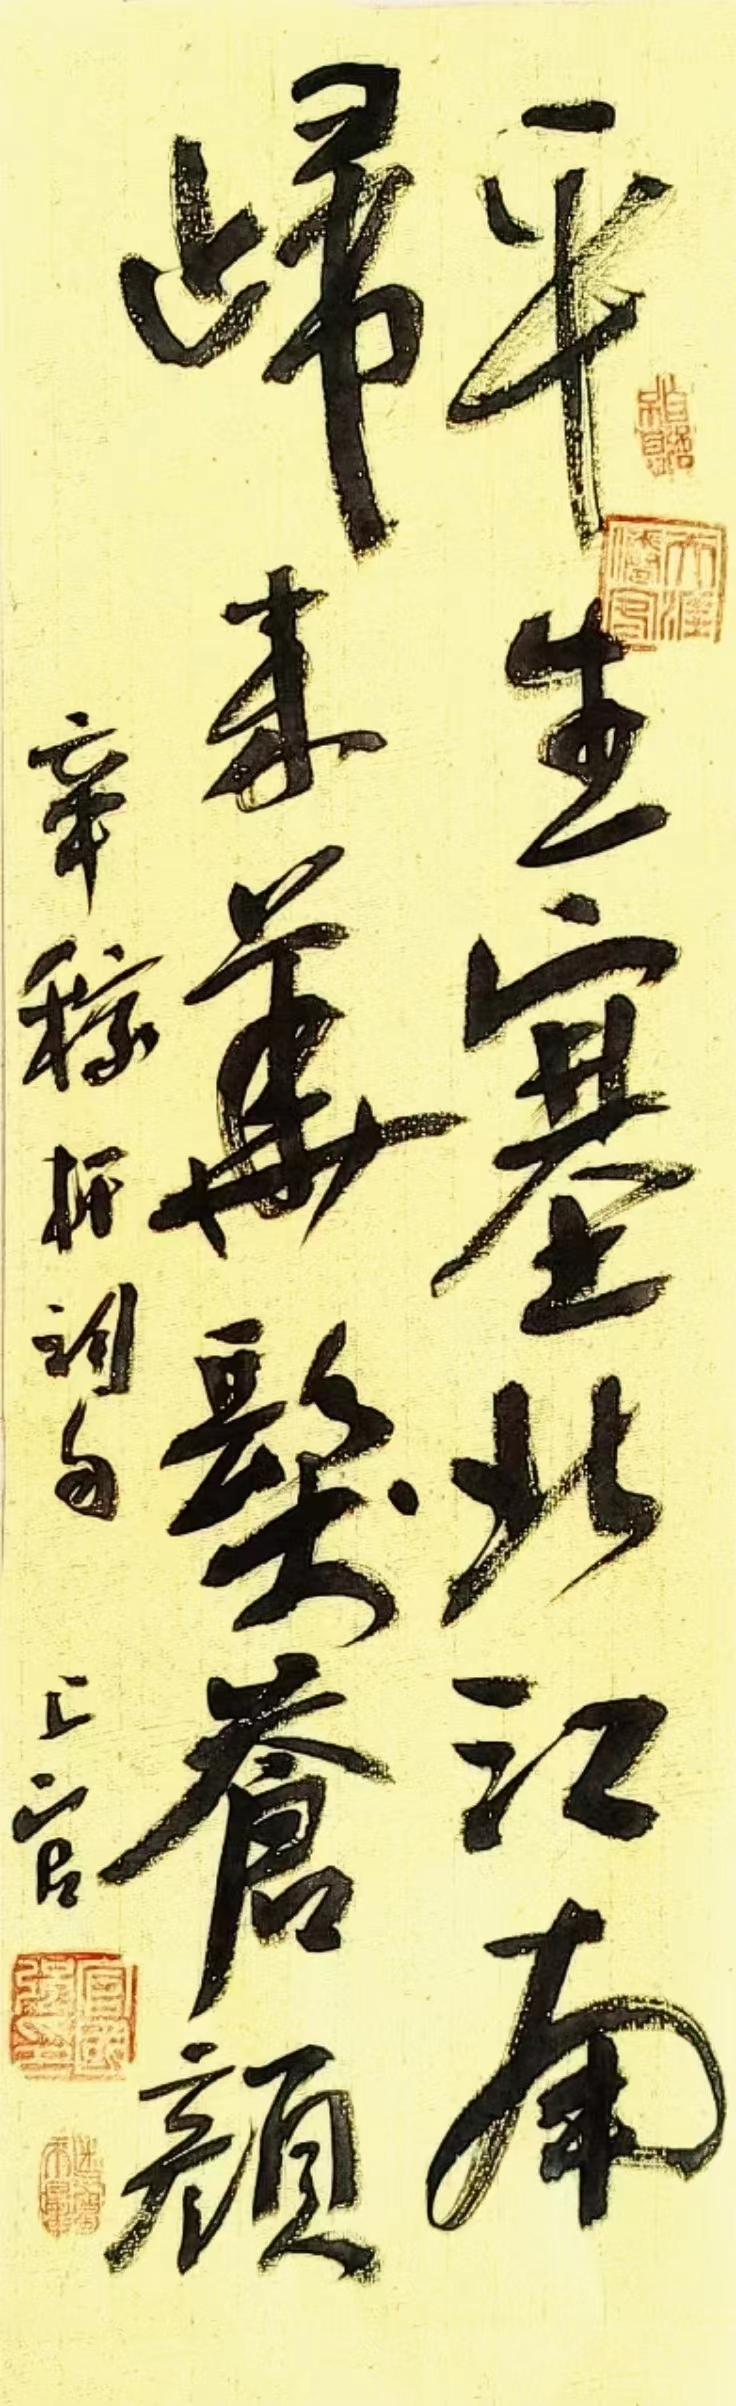 平生塞北江南
歸来華髮蒼顏
辛稼軒詞句
上官